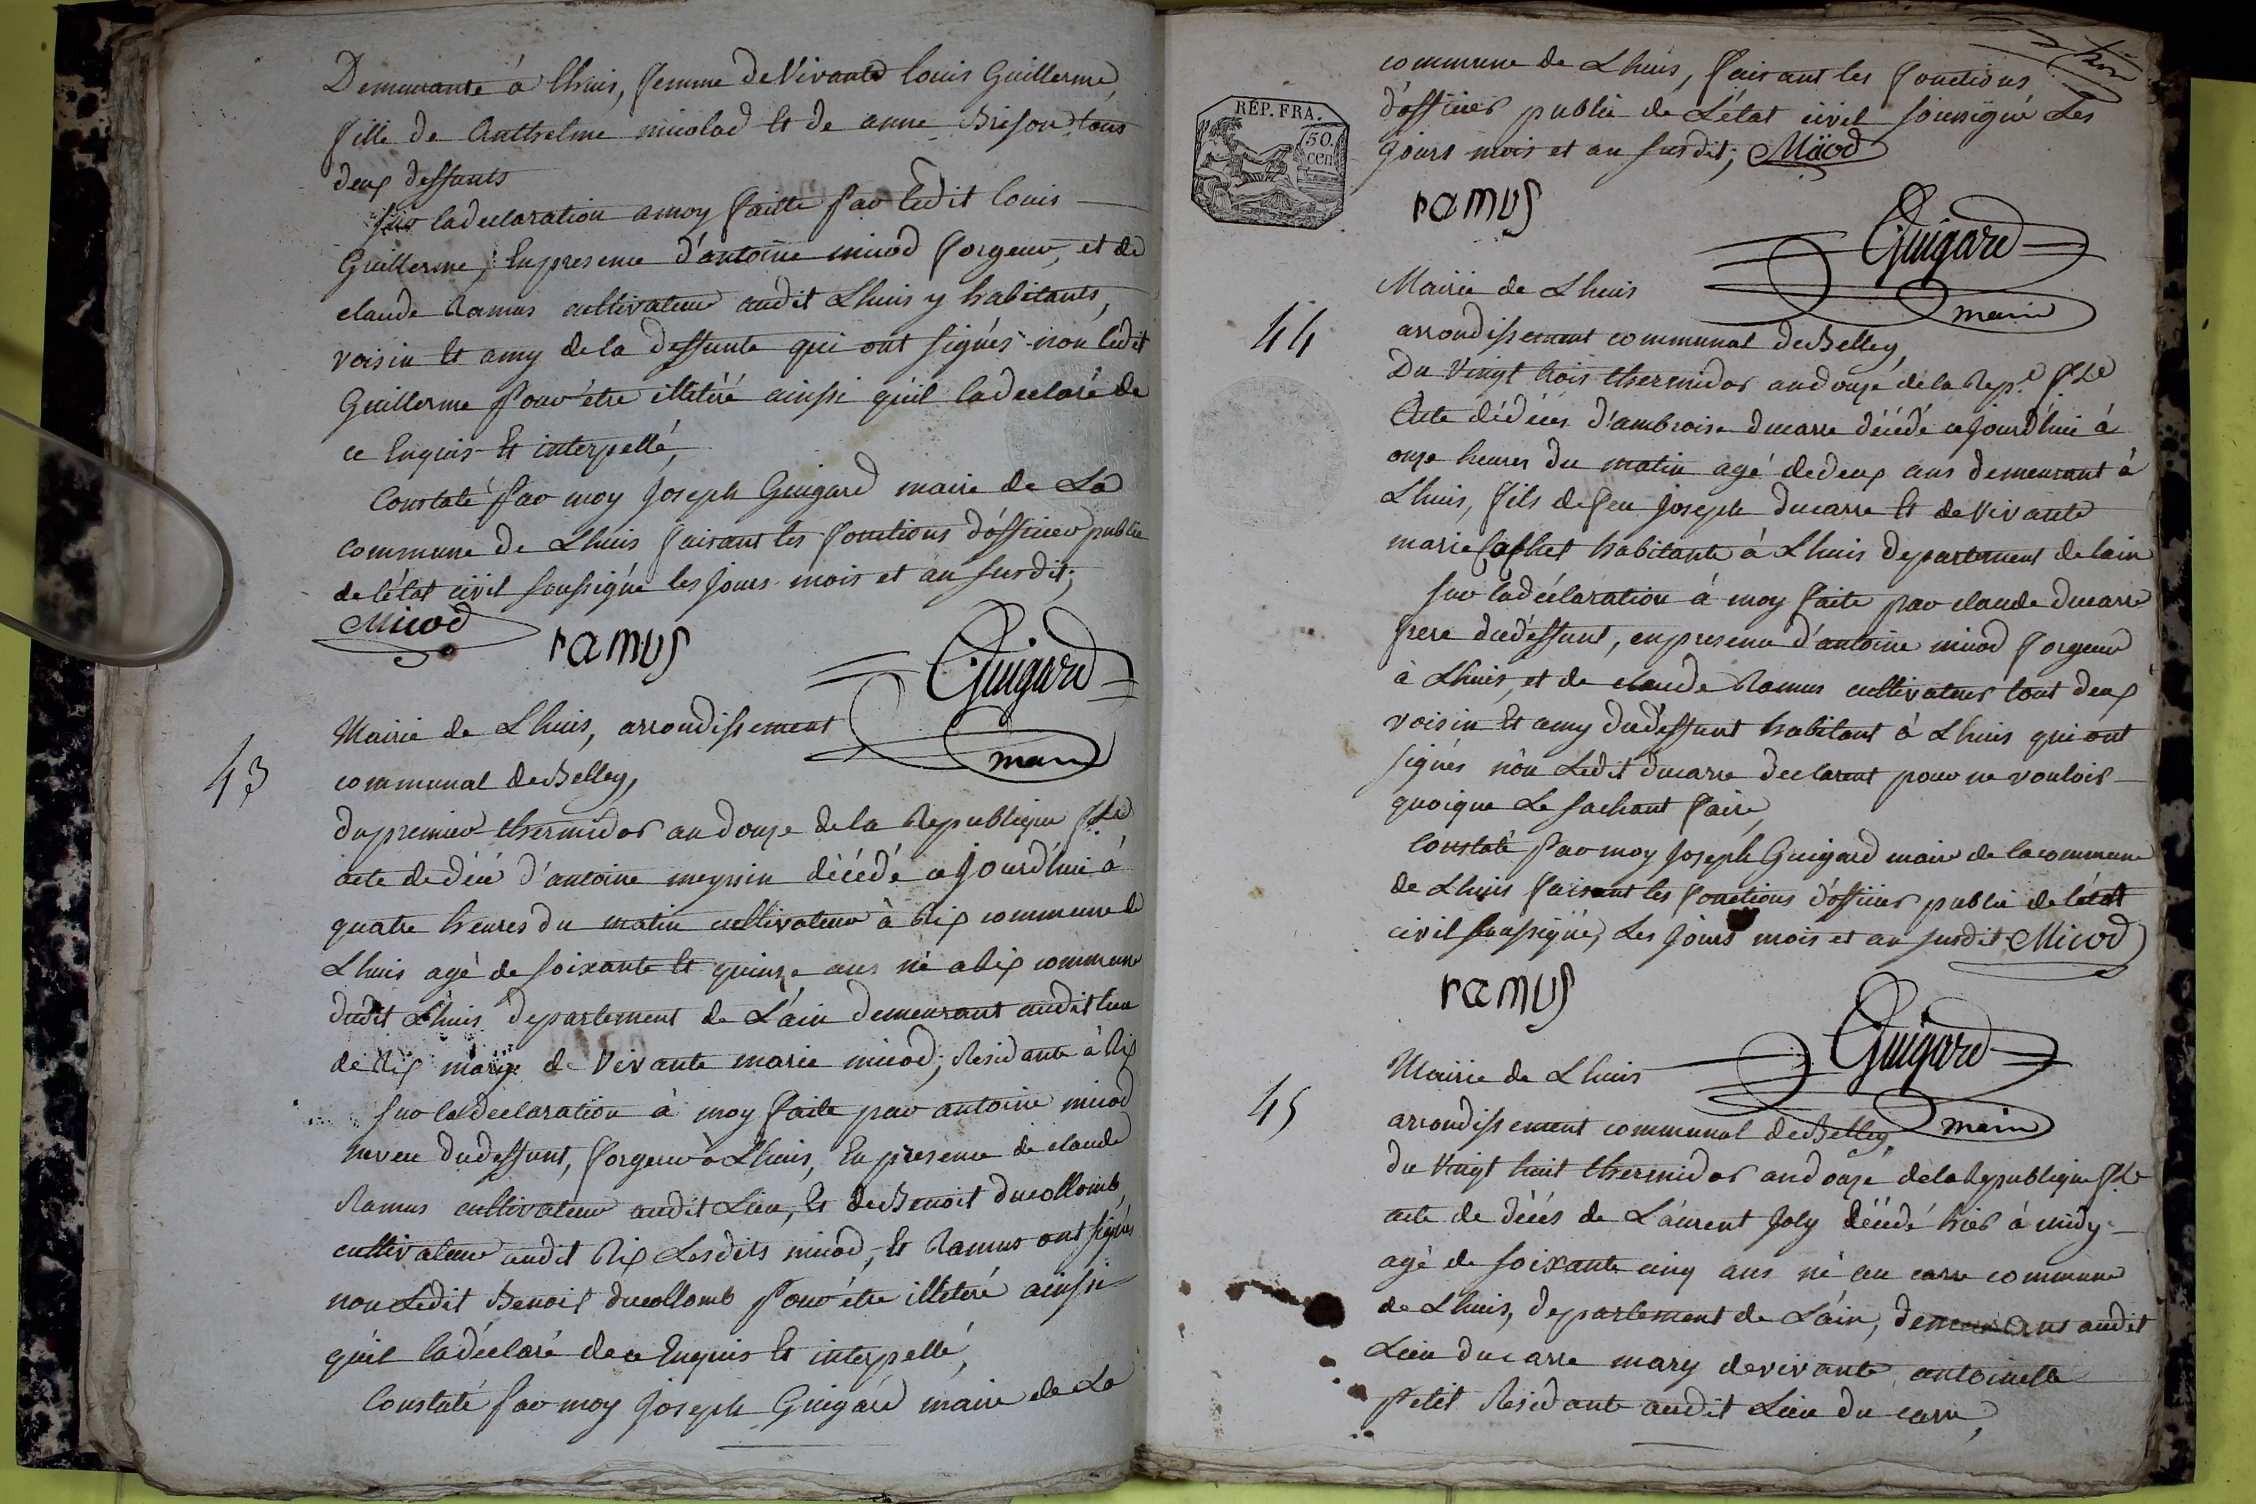 Demeurante à Lhuis, femme de Vivante Louis Guillerme,
fille de Anthelme micolad et de anne Brison tous
deux deffunts
sur la declaration a moy faitte par ledit louis
Guillerme, En presence d'antoine micod forgeur, et de
claude Ramus cultivateur audit Lhuis y habitants,
voisin Et amy de la deffunte qui ont signés non ledit
Guillerme pour être illetéré ainssi qu'il la declaré de
ce Enquis Et interpellé,
Constaté par moy joseph Guigard maire de La
commune de Lhuis faisant les fonctions d'officier public
de l'état civil soussigné les jours mois et an susdit;
Micod
ramus
Guigard
maire
43
Mairie de Lhuis, arrondissement
communal de Belley,
du premier thermidor an douze de la Republique fse
acte de décé d'antoine meyssin décédé ce jourd'hui à
quatre heures du matin cultivateur à Rix commune de
Lhuis agé de soixante Et quinze ans né a Rix commune
dudit Lhuis departement de L'ain demeurant audit lieu
de Rix mary de Vivante marie micod, Residante à Rix
sur la declaration à moy faite par antoine micod
neveu du deffunt, forgeur à Lhuis, En presence de claude
Ramus cultivateur audit Lieu, Et de Benoit ducollomb
cultivateur audit Rix Lesdits micod, Et Ramus ont signés
non Ledit Benoit ducollomb pour être illetéré ainssi
qu'il la déclaré de ce Enquis Et interpellé,
Constaté par moy joseph Guigard maire de La
commune de Lhuis, faisant les fonctions
d'officier public de L'état civil soussigné Les
jours mois et an susdit; Micod
RÉP. FRA.
50.
cen
ramus
Guigard
maire
44
Mairie de Lhuis
arrondissement communal de Belley,
Du Vingt trois thermidor an douze de la Rep.e fse
Acte de décès d'ambroise ducarre décédé ce jourd'hui à
onze heures du matin agé de deux ans demeurant à
Lhuis, fils de feu joseph ducarre Et de Vivante
marie habitante à Lhuis departement de lain
sur la déclaration à moy faite par claude ducarre
frere du deffunt, en presence d'antoine micod forgeur
à Lhuis, et de claude Ramus cultivateur tout deux
voisin Et amy du deffunt habitant à Lhuis qui ont
signés non Ledit ducarre declarant pour ne vouloir
quoique Le sachant faire,
Constaté par moy joseph Guigard maire de la commune
de Lhuis faisant les fonctions d'officier public de l'état
civil soussigné, Les jours mois et an susdit Micod
ramus
Guigard
maire
45
Mairie de Lhuis
arrondissement communal de Belley
du Vingt huit thermidor an douze de la Republique fse
acte de décés de Laurent Joly décédé hier à midy
agé de soixante cinq ans né au carre commune
de Lhuis, departement de L'ain, demeurant audit
Lieu du carre mary de vivante antoinette
Petit Residante audit Lieu du carre,